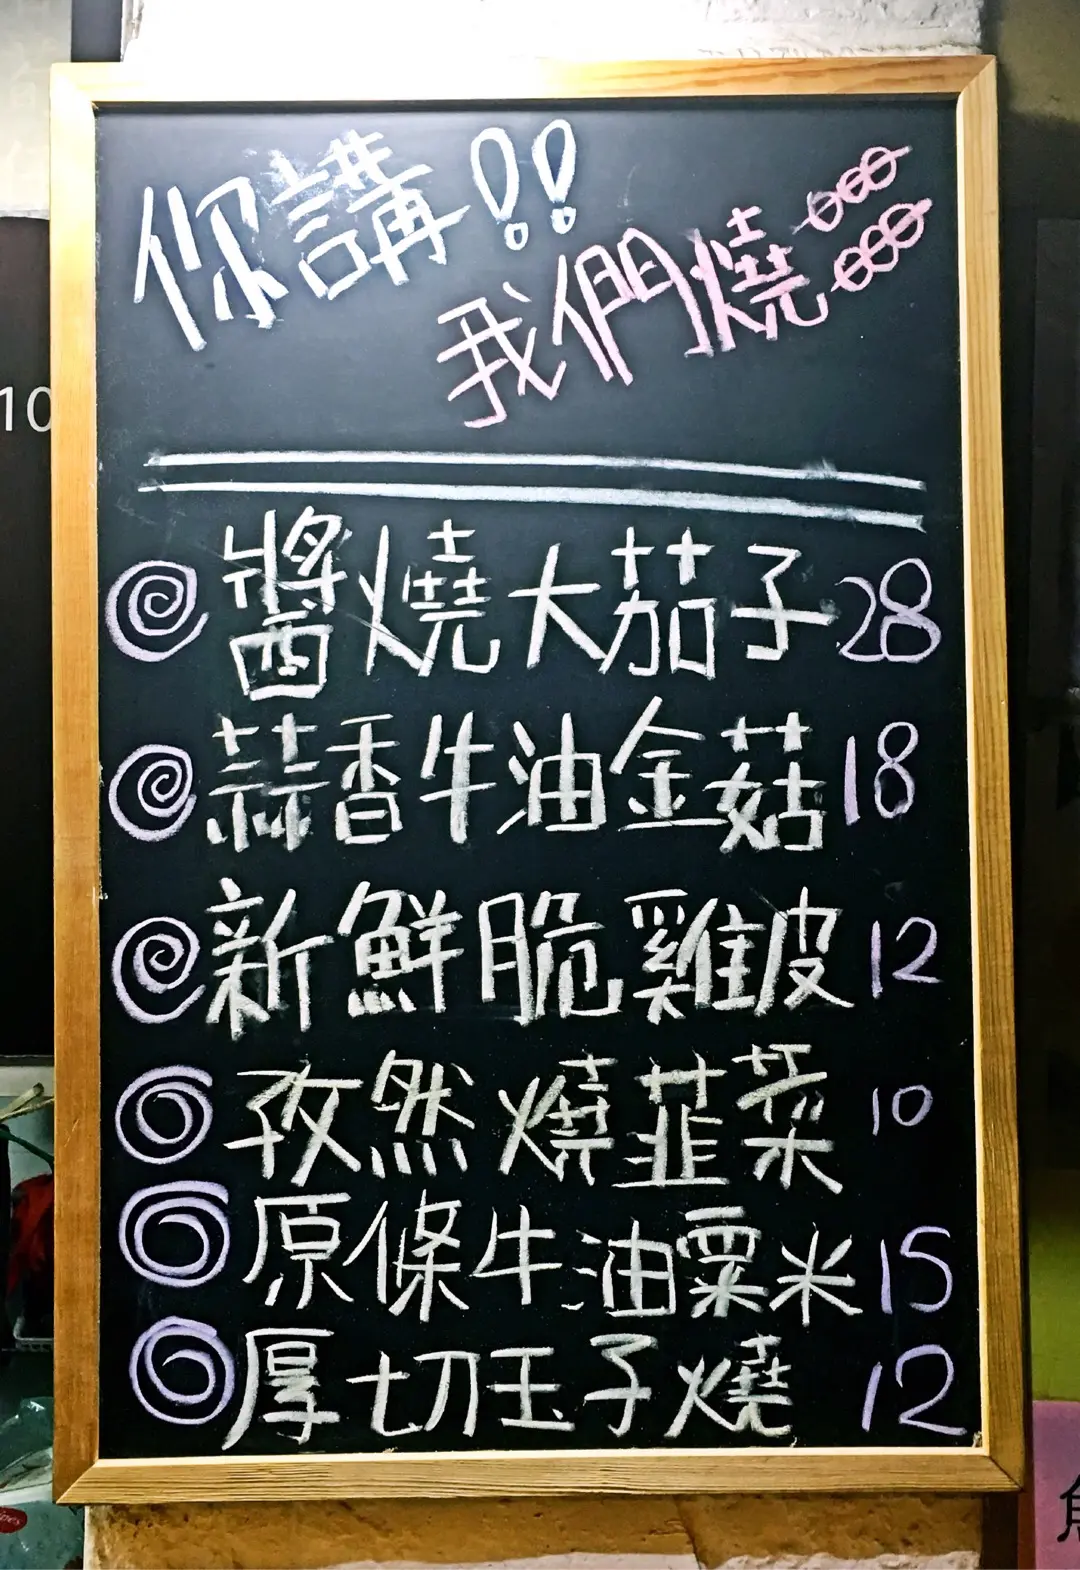 你講!!
我們燒
醬燒大茄子 28
蒜香牛油金菇 18
新鮮脆雞皮 12
孜然燒韮菜 10
原條牛油粟米 15
厚切玉子燒 12
10